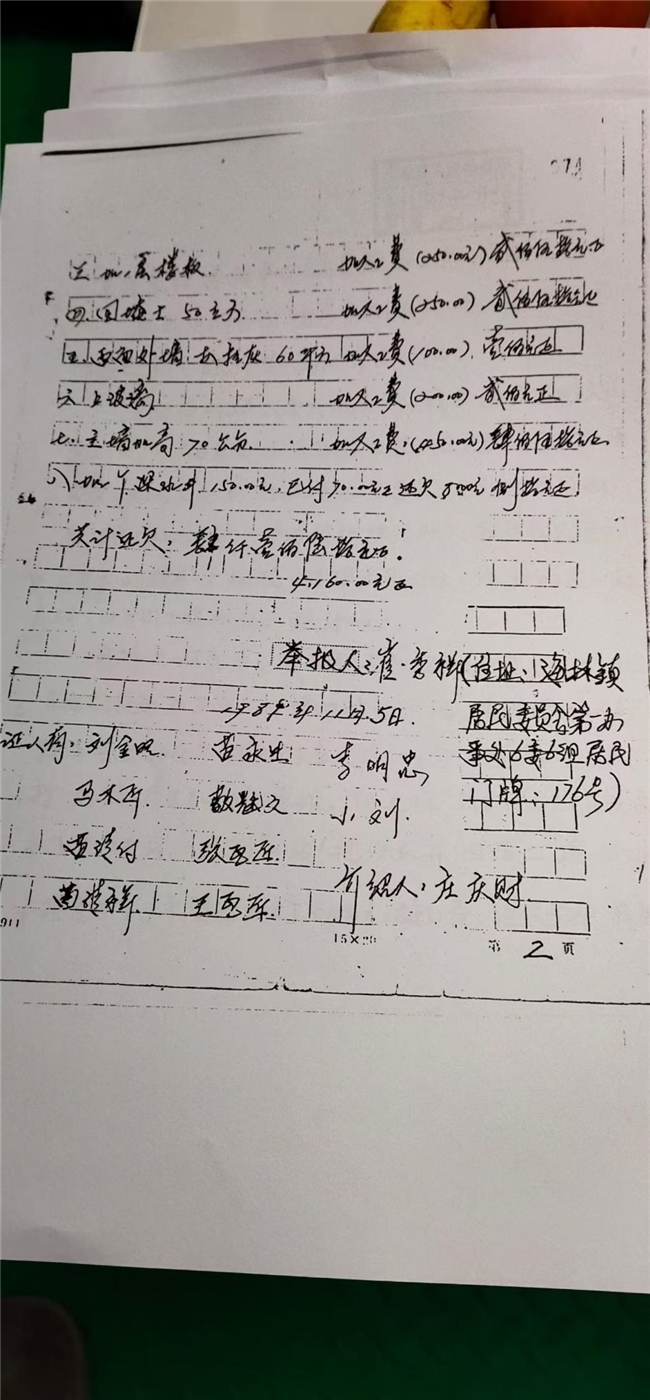 三 加一层楼板 加人工费(250.00元)贰佰伍拾元正
四.回填土50立方 加人工费(250.00)贰佰伍拾元正
五. 外墙 抹灰60平方 加人工费(100.00).壹佰元正
六 上玻璃 加人工费(200.00)贰佰元正
七.主墙加高70公分. 加人工费.(450.00元)肆佰伍拾元正.
八 加 深水井150.00元,已付70.00元正还欠80.00元 捌拾元正
共计还欠:肆仟壹佰陆拾元正.
4.160.00元正
举报人:崔 祥(住址:海林镇
1989年11月5日. 居民委员会第一办
证人有:刘金 苗永生 李明忠 事处6委6组居民
马 小刘. 门牌:176号)
苗 付 张
苗 群. 王
介绍人:庄庆财
911 15×20 第 2 页